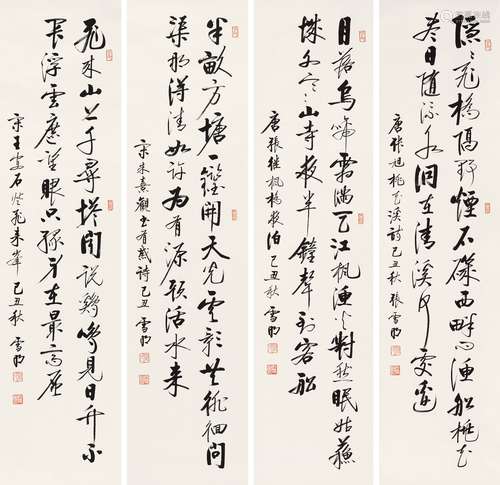 隱隱飛橋隔野煙石磯西畔问漁船桃花
盡日隨流水洞在清溪何處邊
唐張旭桃花溪詩己丑秋 張雪
月落烏啼霜滿天江楓漁火對愁眠姑蘇
城外寒山寺夜半鐘聲到客船
唐張继楓橋夜泊 己丑秋 雪
半畝方塘一鑑開天光雲影共徘徊問
渠那得清如許為有源頭活水来
宋朱熹觀書有感詩 己丑 雪
飛来山上千尋塔聞說鷄鳴見日升不
畏浮雲遮望眼只緣身在最高層
宋王安石登飛来峯 己丑秋 雪